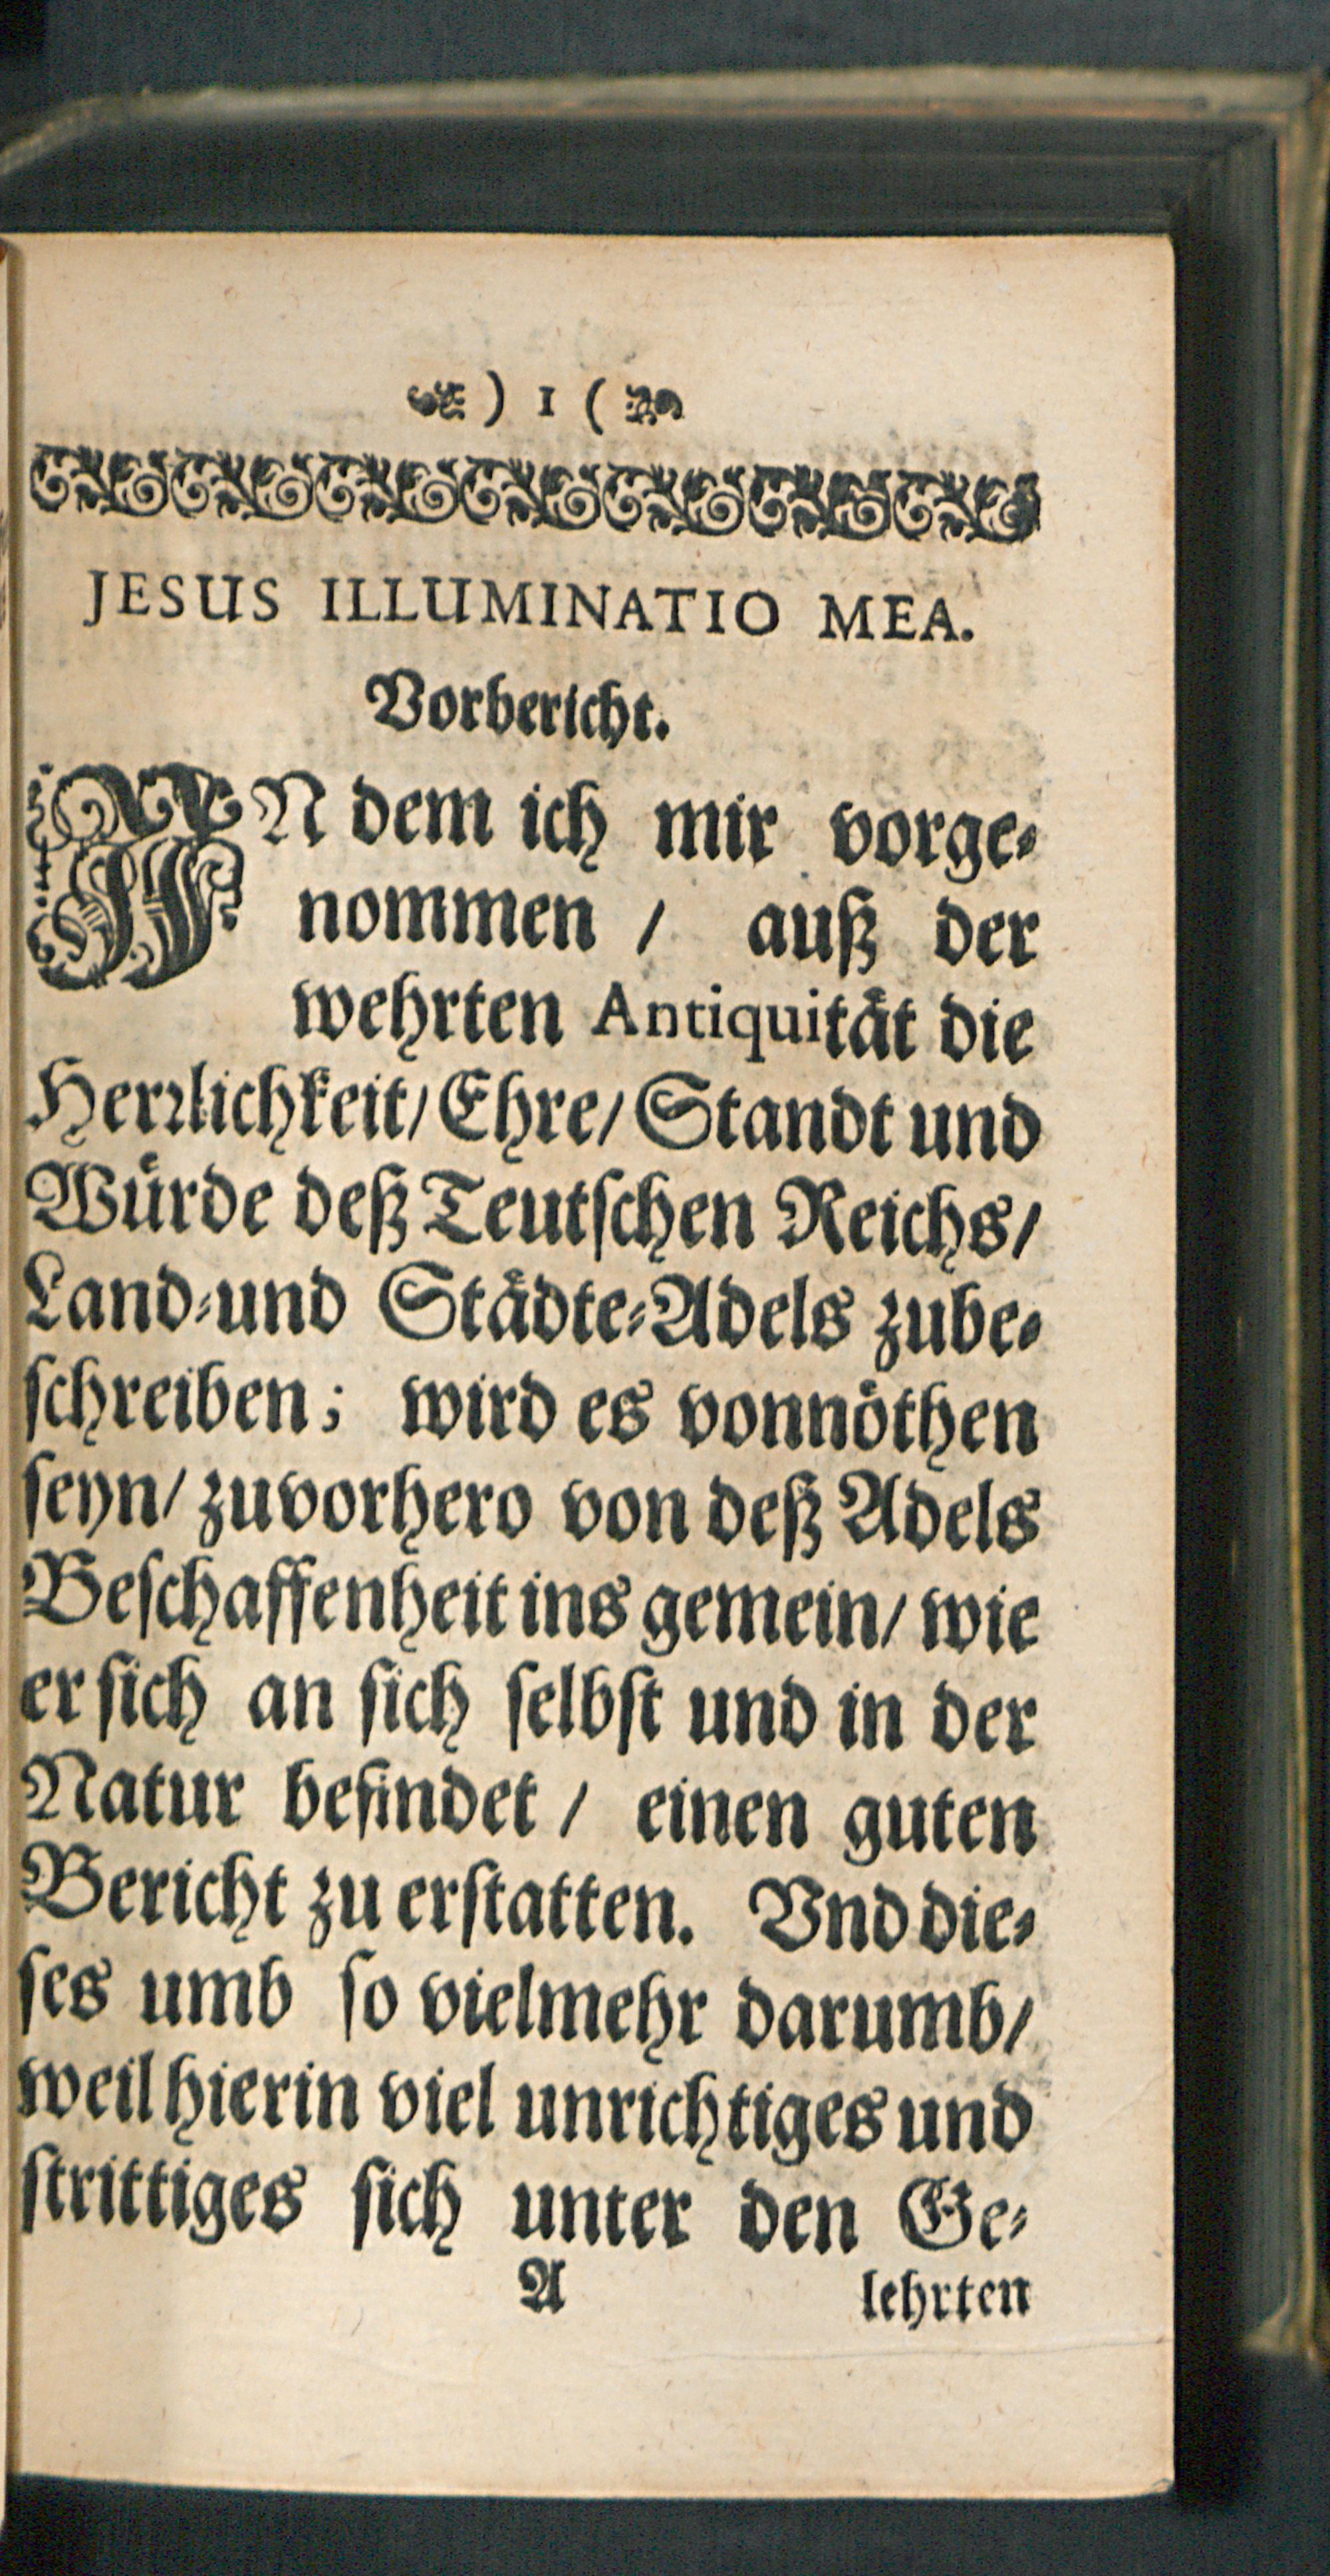 ) 1 (
JESUS ILLUMINATIO MEA.
Vorbericht.
IN dem ich mir vorge⸗
nommen / auß der
wehrten Antiquitaͤt die
Herꝛlichkeit/ Ehre/ Standt und
Wuͤrde deß Teutſchen Reichs/
Land⸗und Staͤdte⸗Adels zube⸗
ſchreiben; wird es vonnoͤthen
ſeyn/ zuvorhero von deß Adels
Beſchaffenheit ins gemein/ wie
er ſich an ſich ſelbſt und in der
Natur befindet / einen guten
Bericht zu erſtatten. Vnd die⸗
ſes umb ſo vielmehr darumb/
weil hierin viel unrichtiges und
ſtrittiges ſich unter den Ge⸗
A lehrten